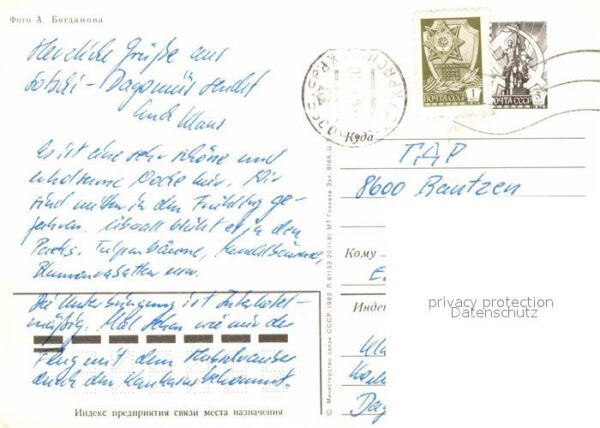 Фото А. Богданова
Herzliche Grüße aus
Sotschi - Dagomüs sendet
Euch Klaus
Es ist eine sehr schöne und
erholsame Woche hier. Wir
sind mitten in den Frühling ge-
fahren. Überall blüht es in den
Parks. Tulpenbäume, Mandelbäume,
Blumenrabatten usw.
Die Unterbringung ist Interhotel-
mäßig. Mal sehen wie mir der
Flug mit dem Hubschrauber
durch den Kaukasus bekommt.
Индекс предприятия связи места назначения
© Министерство связи СССР, 1982
МТ Гознака. Зак.
ПОЧТА СССР 1
ПОЧТА СССР 3
Куда
ГДР
8600 Bautzen
Кому
E.
Индек
privacy protection
Datenschutz
Kla
Dag